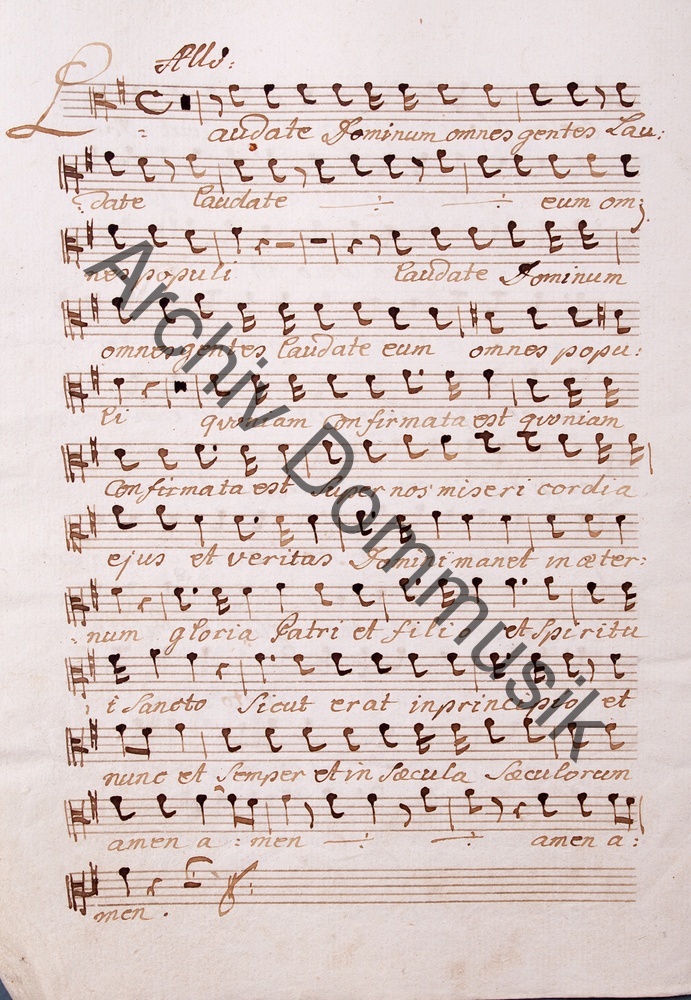 Allo:
Laudate Dominum omnes gentes Lau:
date laudate eum om:
nes populi laudate Dominum
omnes gentes laudate eum omnes popu:
li qvoniam Confirmata est qvoniam
Confirmata est super nos miseri cordia
ejus et veritas Domini manet in æter:
num gloria Patri et filio et Spiritu
i Sancto Sicut erat in principio et
nunc et Semper et in Sæcula Sæculorum
amen a: men amen a:
men.
Archiv Dommusik